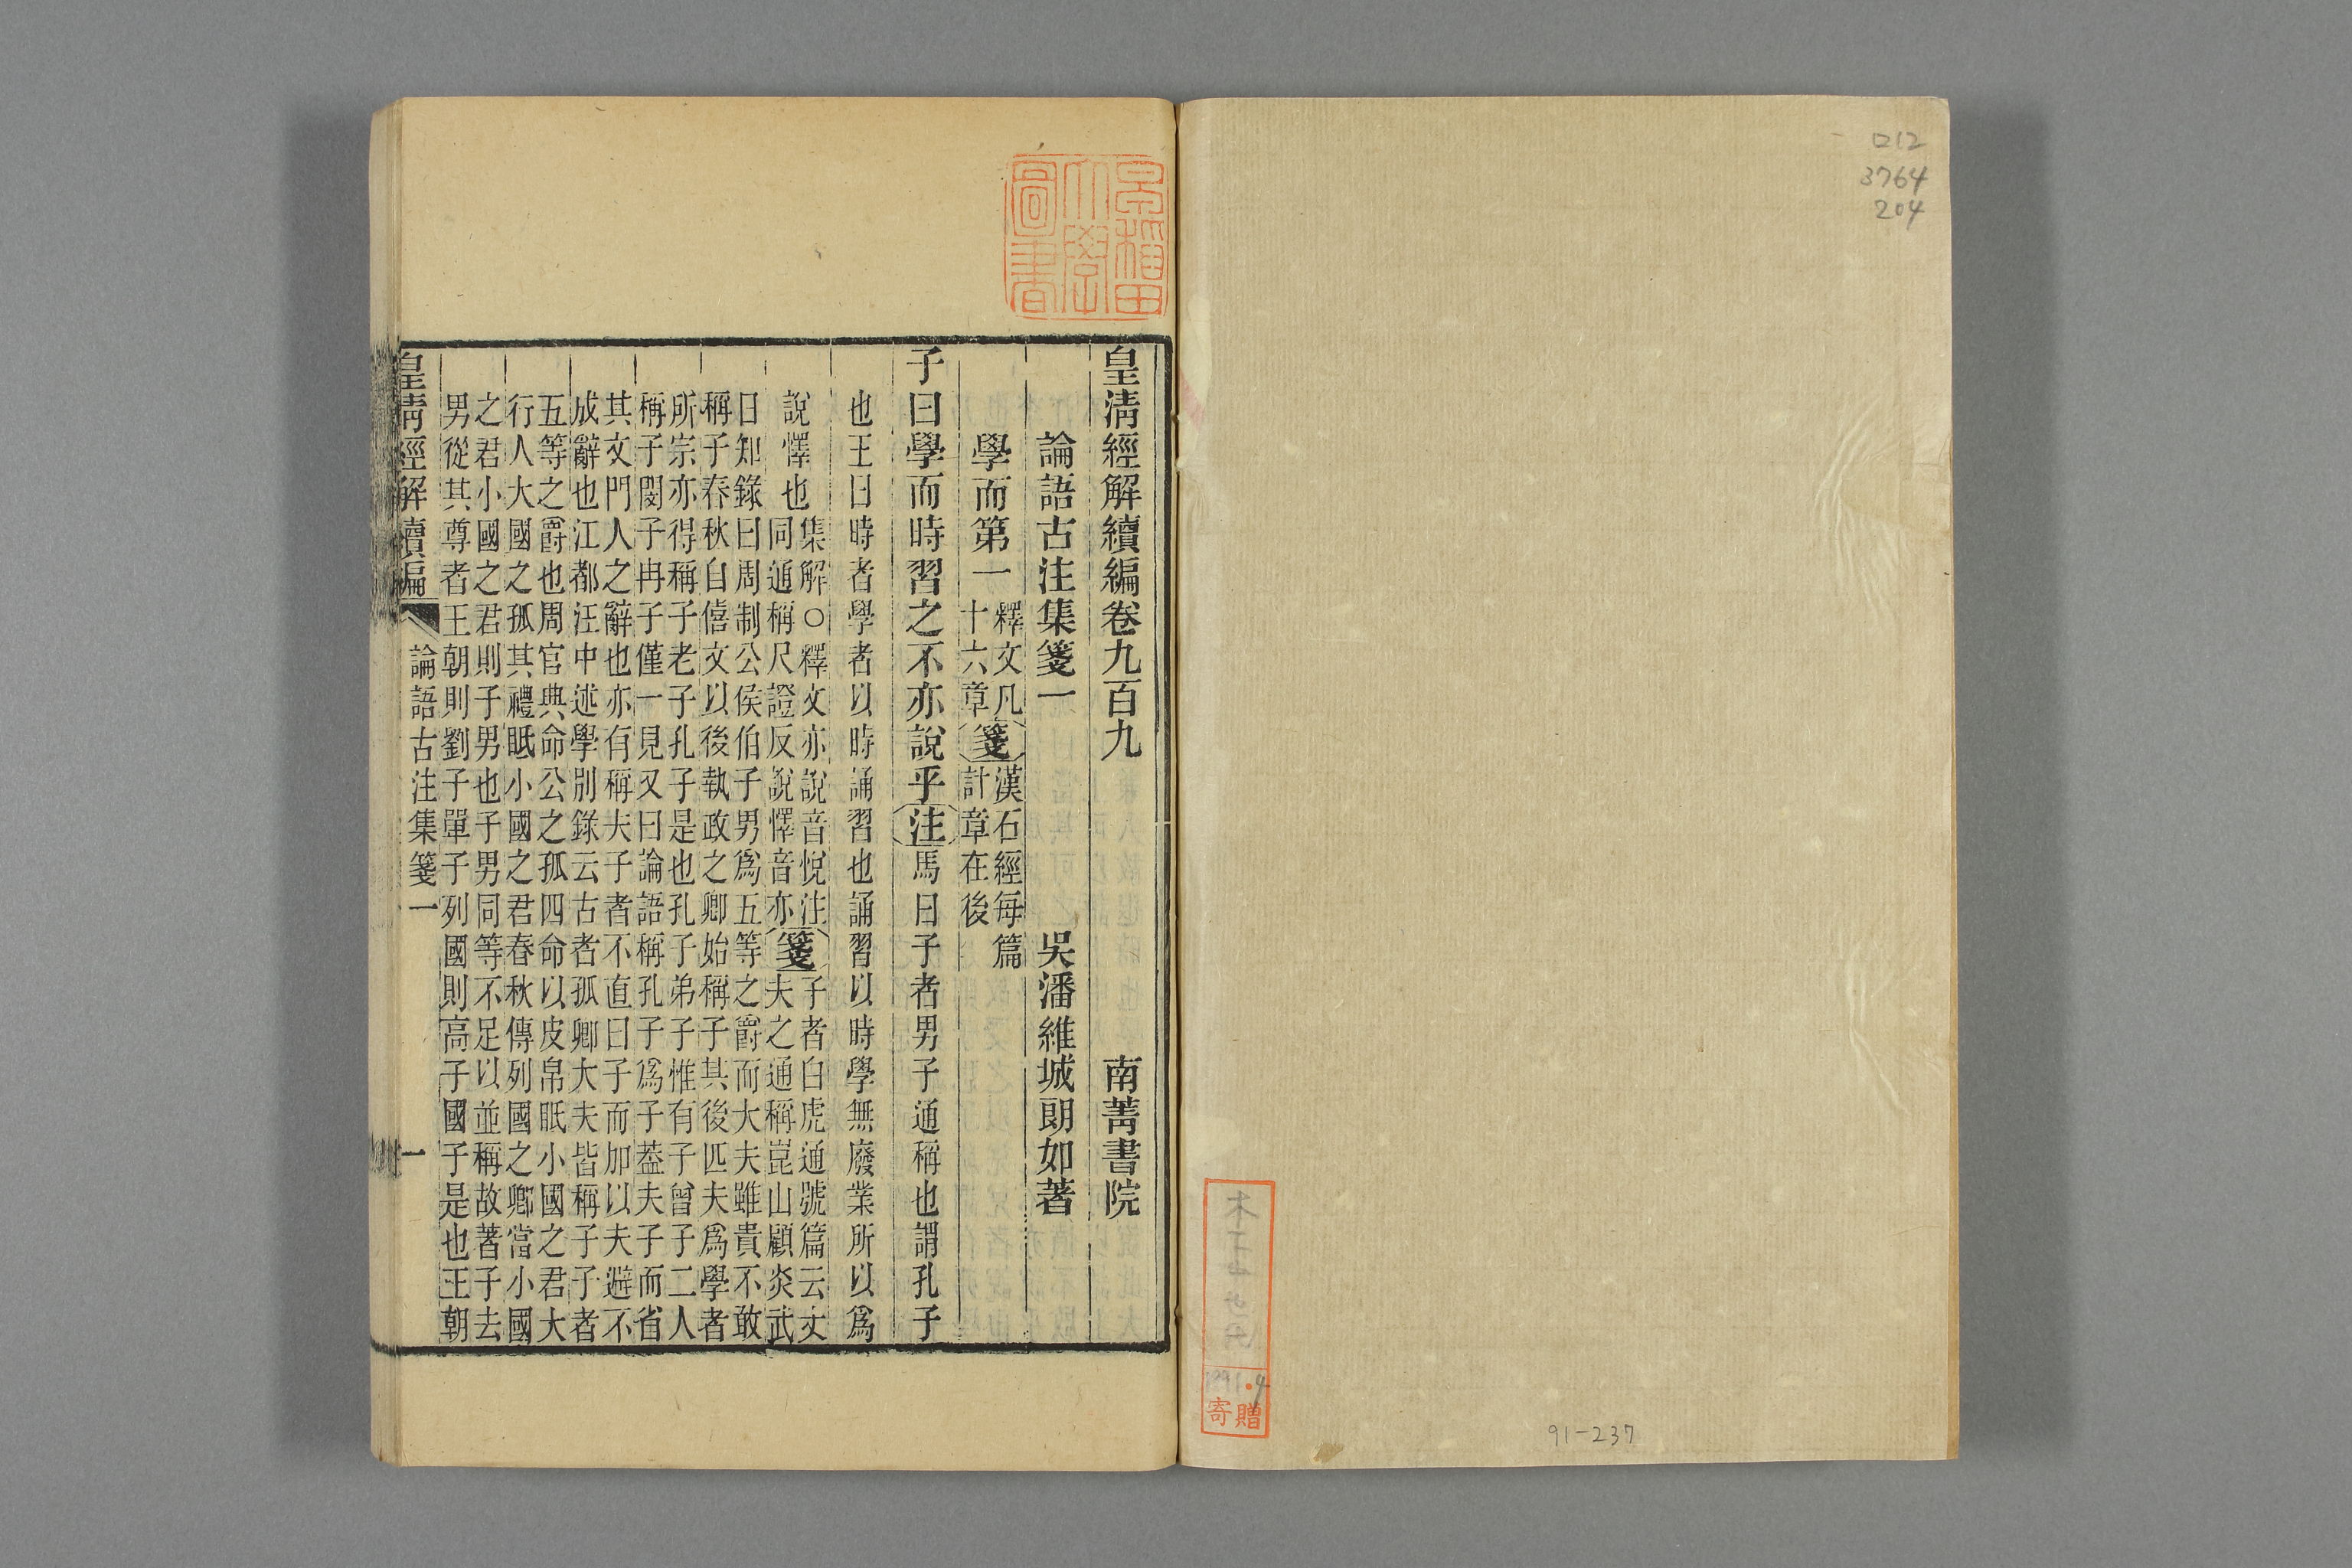 口12
3764
204
寄贈
91-237
早稻田
大學
圖書
皇清經解續編卷九百九 南菁書院
論語古注集箋一 吳潘維城朗如著
學而第一 釋文凡十六章 箋 漢石經每篇計章在後
子曰學而時習之不亦說乎 注 馬曰子者男子通稱也謂孔子
也王曰時者學者以時誦習也誦習以時學無廢業所以爲
說懌也 集解○釋文亦說音悅注同通稱尺證反說懌音亦 箋 子者白虎通號篇云丈夫之通稱崑山顧炎武
日知錄曰周制公侯伯子男爲五等之爵而大夫雖貴不敢
稱子春秋自僖文以後執政之卿始稱子其後匹夫爲學者
所宗亦得稱子老子孔子是也孔子弟子惟有子曾子二人
稱子閔子冉子僅一見又曰論語稱孔子爲子蓋夫子而省
其文門人之辭也亦有稱夫子者不直曰子而加以夫避不
成辭也江都汪中述學別錄云古者孤卿大夫皆稱子子者
五等之爵也周官典命公之孤四命以皮帛眡小國之君大
行人大國之孤其禮眡小國之君春秋傳列國之卿當小國
之君小國之君則子男也子男同等不足以並稱故著子去
男從其尊者王朝則劉子單子列國則高子國子是也王朝
皇清經解續編 論語古注集箋一 一